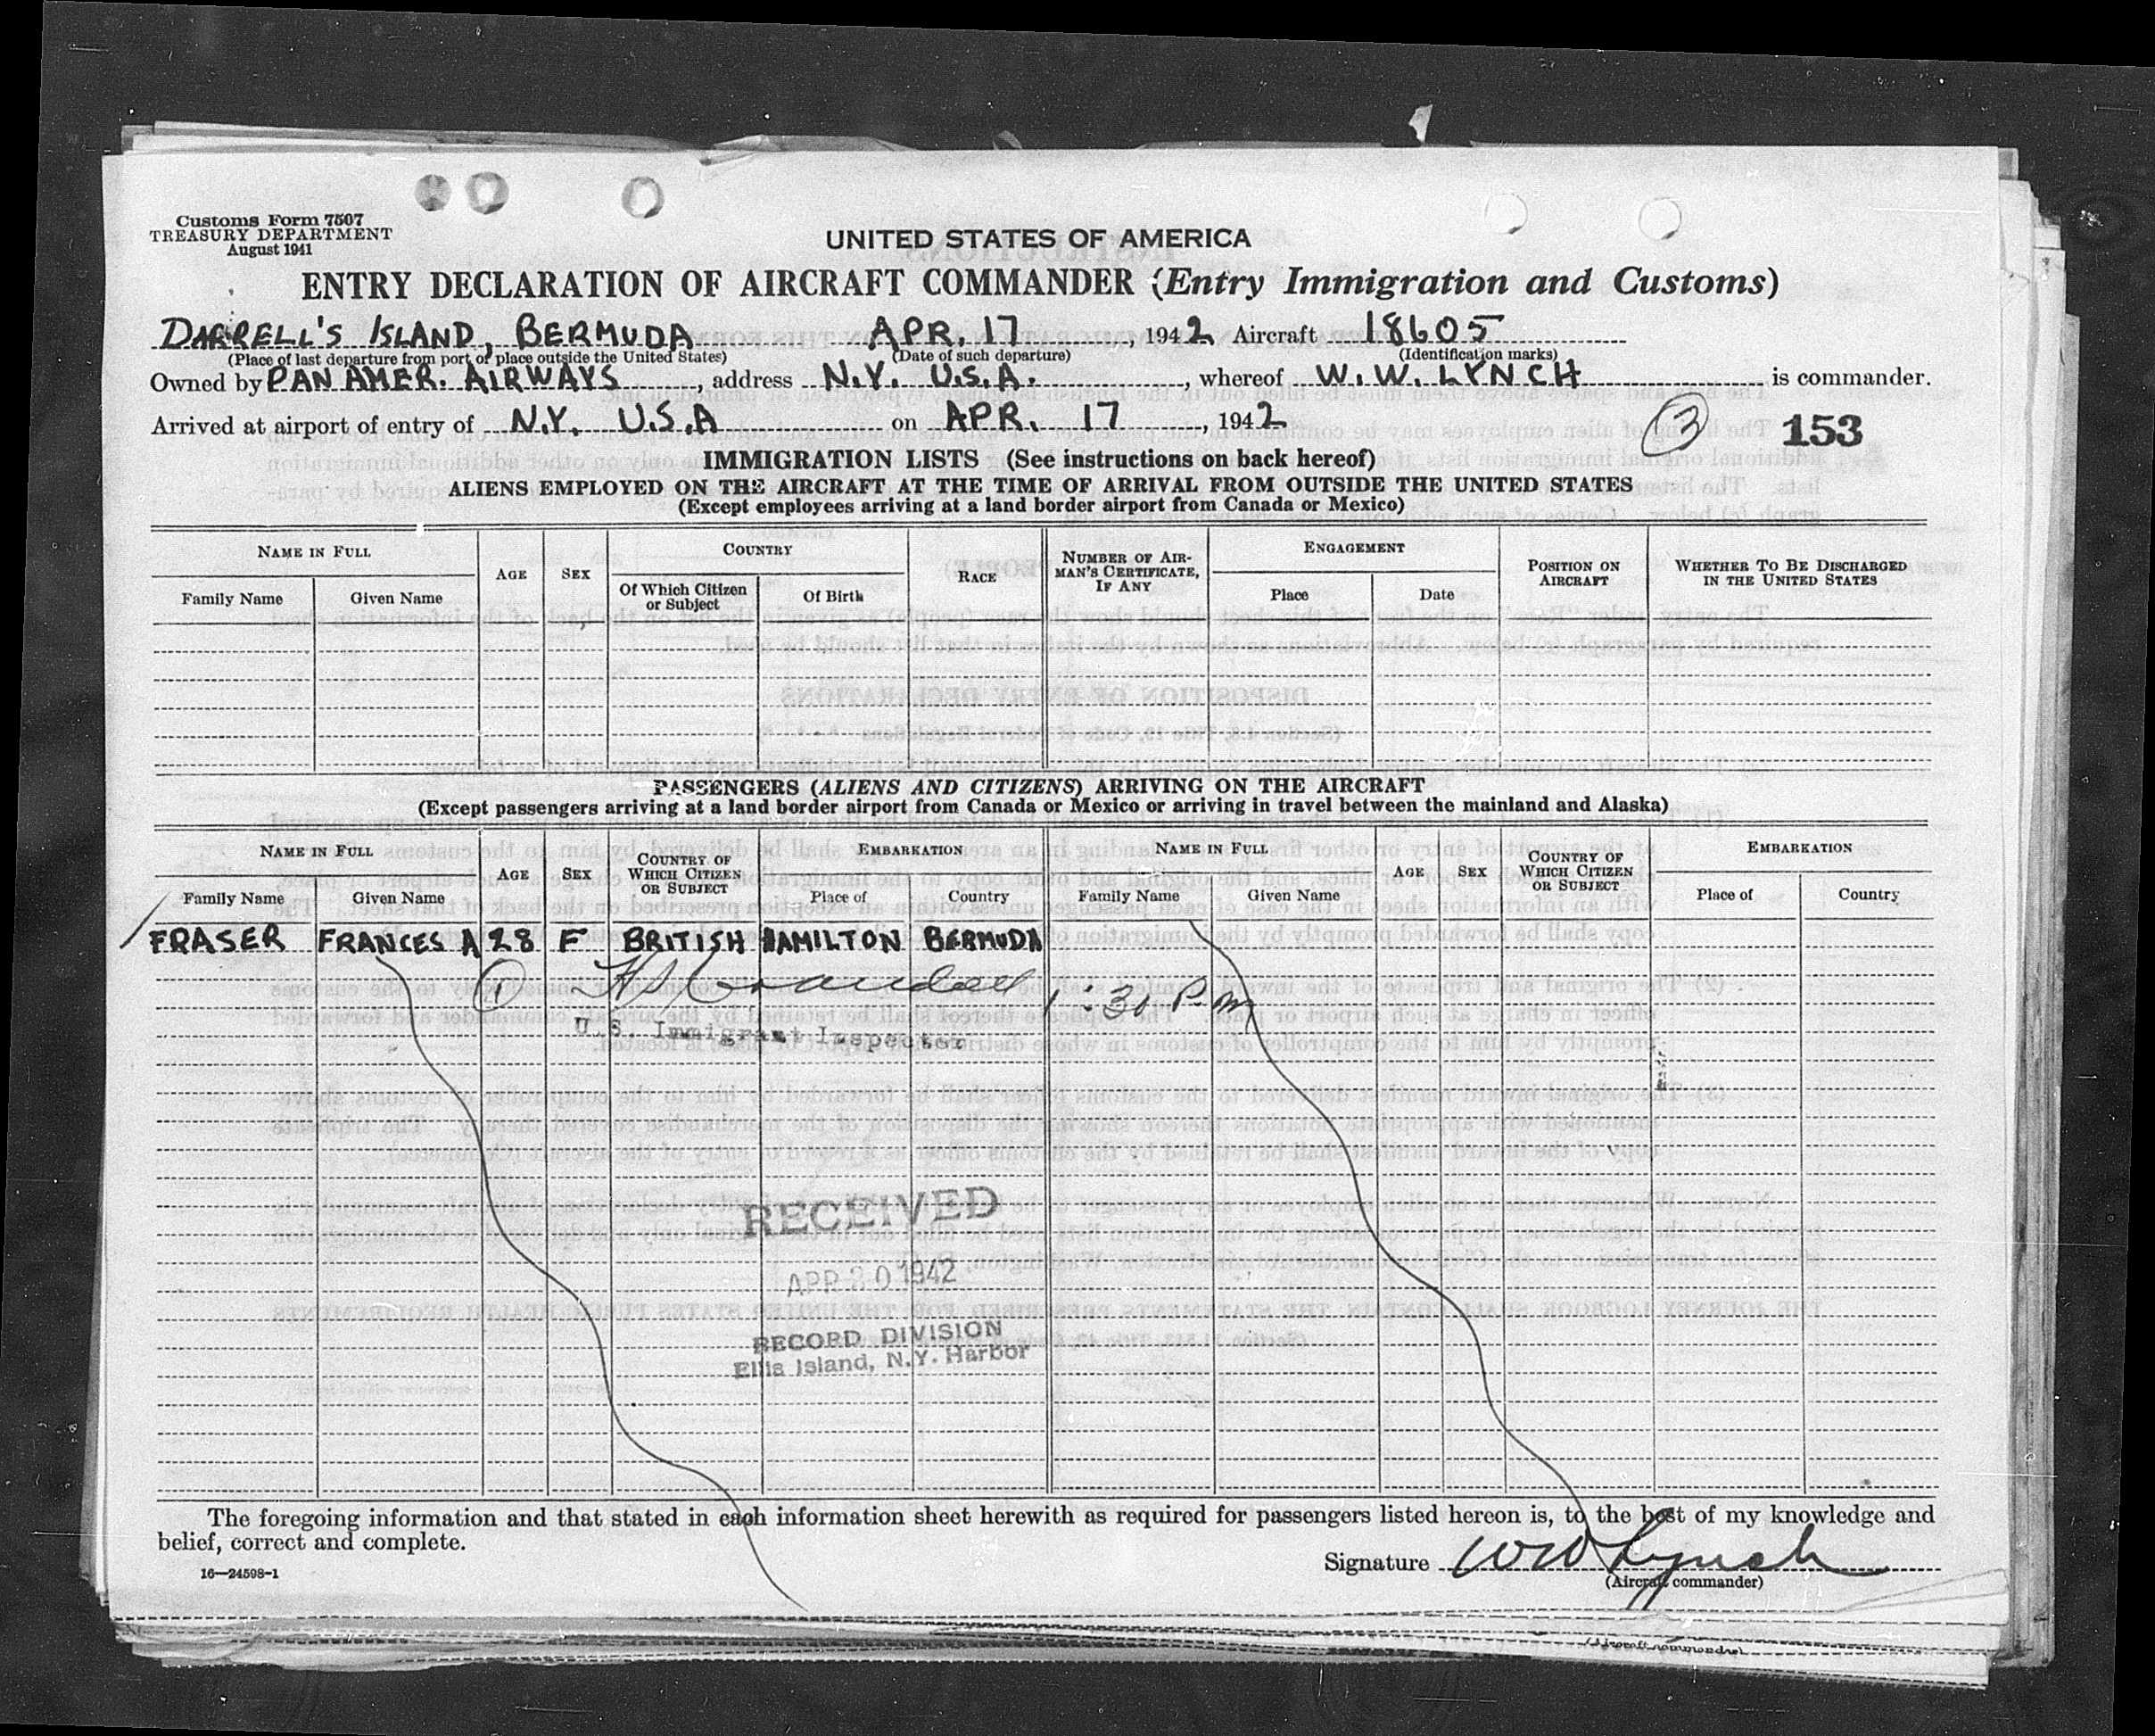 Customs Form 7507
TREASURY DEPARTMENT
August 1941
UNITED STATES OF AMERICA
ENTRY DECLARATION OF AIRCRAFT COMMANDER (Entry Immigration and Customs)
DARRELL'S ISLAND, BERMUDA APR. 17, 1942 Aircraft 18605
(Place of last departure from port or place outside the United States) (Date of such departure) (Identification marks)
Owned by PAN AMER. AIRWAYS, address N.Y. U.S.A., whereof W.W. LYNCH is commander.
Arrived at airport of entry of N.Y. U.S.A on APR. 17, 1942
3 153
IMMIGRATION LISTS (See instructions on back hereof)
ALIENS EMPLOYED ON THE AIRCRAFT AT THE TIME OF ARRIVAL FROM OUTSIDE THE UNITED STATES
(Except employees arriving at a land border airport from Canada or Mexico)
NAME IN FULL AGE SEX COUNTRY RACE NUMBER OF AIRMAN'S CERTIFICATE, IF ANY ENGAGEMENT POSITION ON AIRCRAFT WHETHER TO BE DISCHARGED IN THE UNITED STATES
Family Name Given Name Of Which Citizen or Subject Of Birth Place Date
PASSENGERS (ALIENS AND CITIZENS) ARRIVING ON THE AIRCRAFT
(Except passengers arriving at a land border airport from Canada or Mexico or arriving in travel between the mainland and Alaska)
NAME IN FULL AGE SEX COUNTRY OF WHICH CITIZEN OR SUBJECT EMBARKATION NAME IN FULL AGE SEX COUNTRY OF WHICH CITIZEN OR SUBJECT EMBARKATION
Family Name Given Name Place of Country Family Name Given Name Place of Country
FRASER FRANCES A 28 F BRITISH HAMILTON BERMUDA
1 1:30 P.m
U.S. Immigrant Inspector
RECEIVED
APR 20 1942
RECORD DIVISION
Ellis Island, N.Y. Harbor
The foregoing information and that stated in each information sheet herewith as required for passengers listed hereon is, to the best of my knowledge and
belief, correct and complete.
Signature WW Lynch
(Aircraft commander)
16—24598-1
(Aircraft commander)